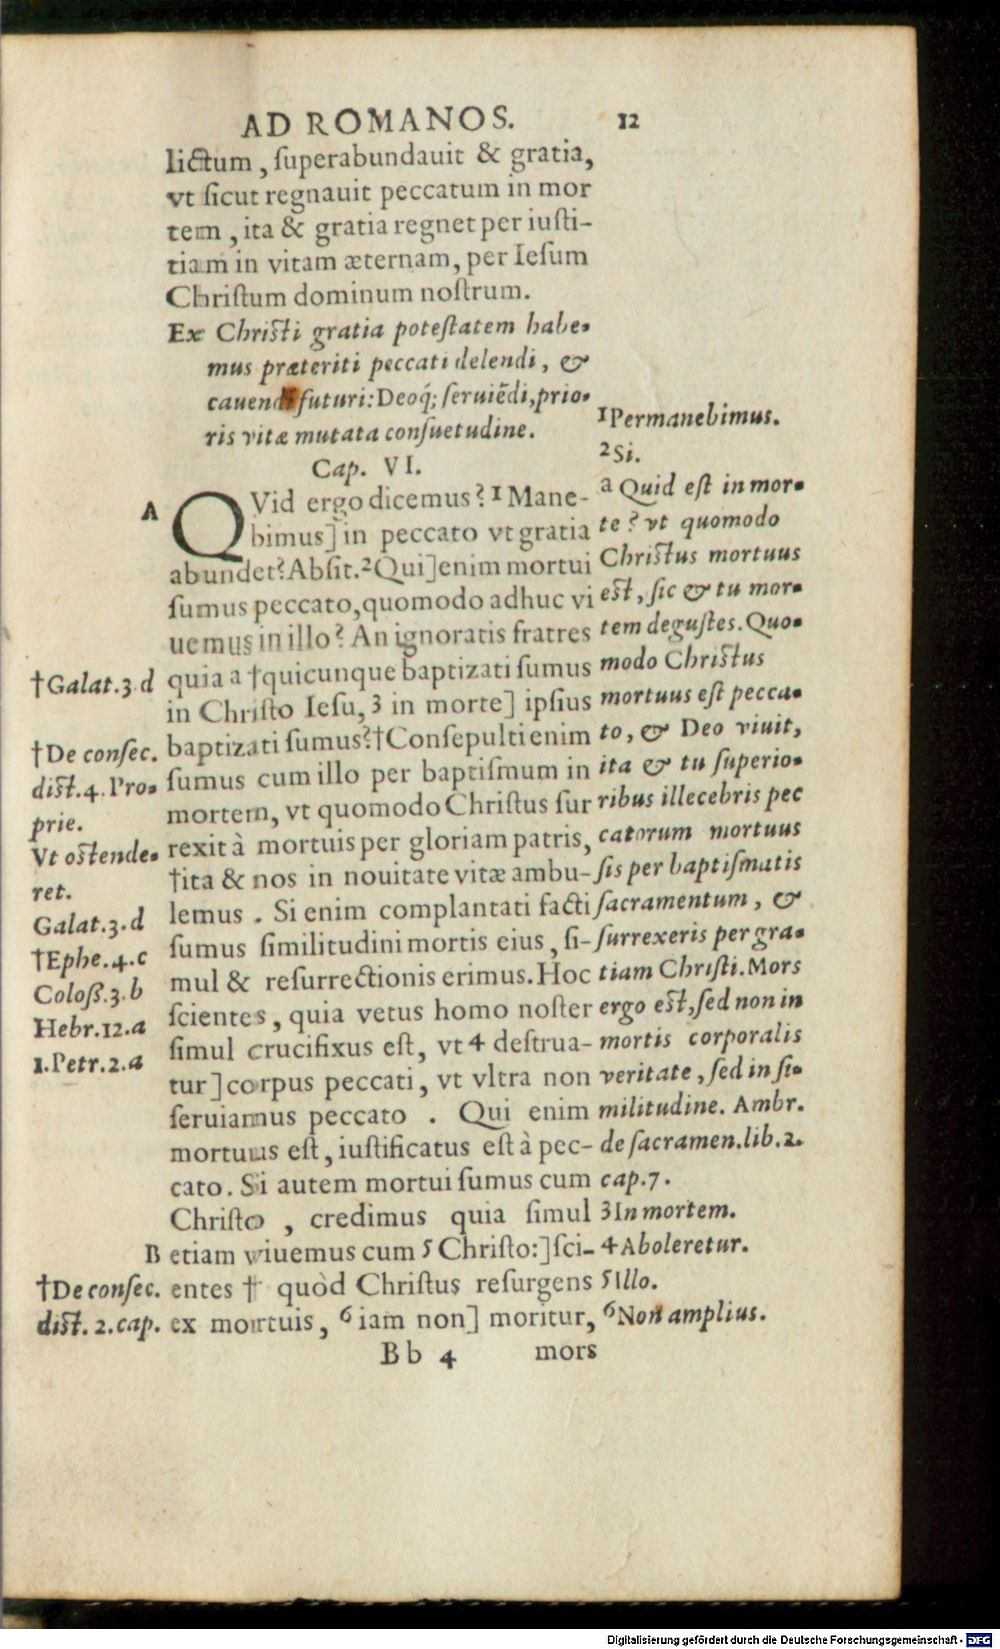 AD ROMANOS. 12
lictum, ſuperabundauit & gratia,
vt ſicut regnauit peccatum in mor
tem, ita & gratia regnet per iuſti-
tiam in vitam æternam, per Ieſum
Chriſtum dominum noſtrum.
Ex Chriſti gratia poteſtatem habe-
mus præteriti peccati delendi, &
cauendi futuri: Deoq́; ſeruiẽdi, prio-
ris vitæ mutata conſuetudine.
Cap. VI.
A
QVid ergo dicemus? 1 Mane-
bimus] in peccato vt gratia
abundet? Abſit. 2 Qui] enim mortui
ſumus peccato, quomodo adhuc vi
uemus in illo? An ignoratis fratres
quia a †quicunque baptizati ſumus
in Chriſto Ieſu, 3 in morte] ipſius
baptizati ſumus? †Conſepulti enim
ſumus cum illo per baptiſmum in
mortem, vt quomodo Chriſtus ſur
rexit à mortuis per gloriam patris,
†ita & nos in nouitate vitæ ambu-
lemus. Si enim complantati facti
ſumus ſimilitudini mortis eius, ſi-
mul & reſurrectionis erimus. Hoc
ſcientes, quia vetus homo noſter
ſimul crucifixus eſt, vt 4 deſtrua-
tur] corpus peccati, vt vltra non
ſeruiamus peccato. Qui enim
mortuus eſt, iuſtificatus eſt à pec-
cato. Si autem mortui ſumus cum
Chriſto, credimus quia ſimul
B etiam viuemus cum 5 Chriſto:] ſci-
entes † quòd Chriſtus reſurgens
ex mortuis, 6 iam non] moritur,
Bb 4 mors
†Galat.3.d
†De conſec.
diſt.4. Pro-
prie.
Vt oſtende-
ret.
Galat.3.d
†Ephe.4.c
Coloß.3.b
Hebr.12.a
1.Petr.2.a
†De conſec.
diſt. 2. cap.
1 Permanebimus.
2 Si.
a Quid eſt in mor-
te? vt quomodo
Chriſtus mortuus
eſt, ſic & tu mor-
tem deguſtes. Quo-
modo Chriſtus
mortuus eſt pecca-
to, & Deo viuit,
ita & tu ſuperio-
ribus illecebris pec
catorum mortuus
ſis per baptiſmatis
ſacramentum, &
ſurrexeris per gra-
tiam Chriſti. Mors
ergo eſt, ſed non in
mortis corporalis
veritate, ſed in ſi-
militudine. Ambr.
de ſacramen. lib. 2.
cap. 7.
3 In mortem.
4 Aboleretur.
5 Illo.
6 Non amplius.
Digitalisierung gefördert durch die Deutsche Forschungsgemeinschaft - DFG